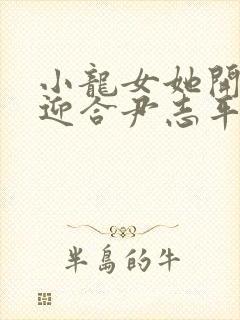 小龍女她開
迎合尹志平
半島的牛